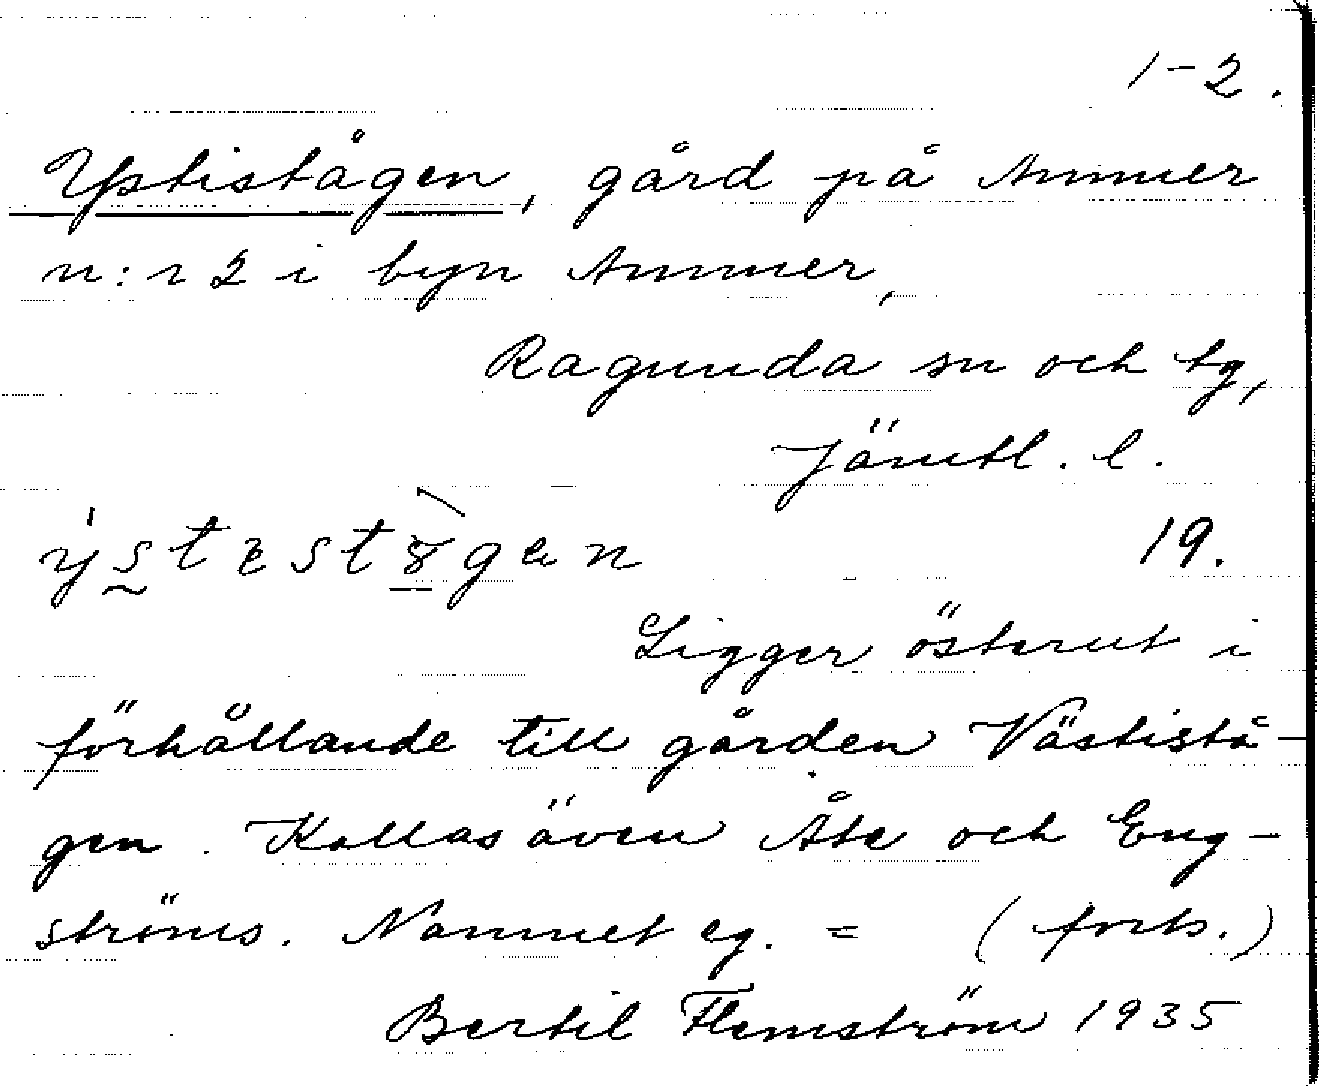 1-2.
Ystistågen, gård på Ammer
n:r 2 i byn Ammer,
Ragunda sn och tg,
Jämtl. l.
19.
Ligger österut i
förhållande till gården Västistå-
gen. Kallas även Åte och Eng-
ströms. Namnet eg. = (forts.)
Bertil Flemström 1935